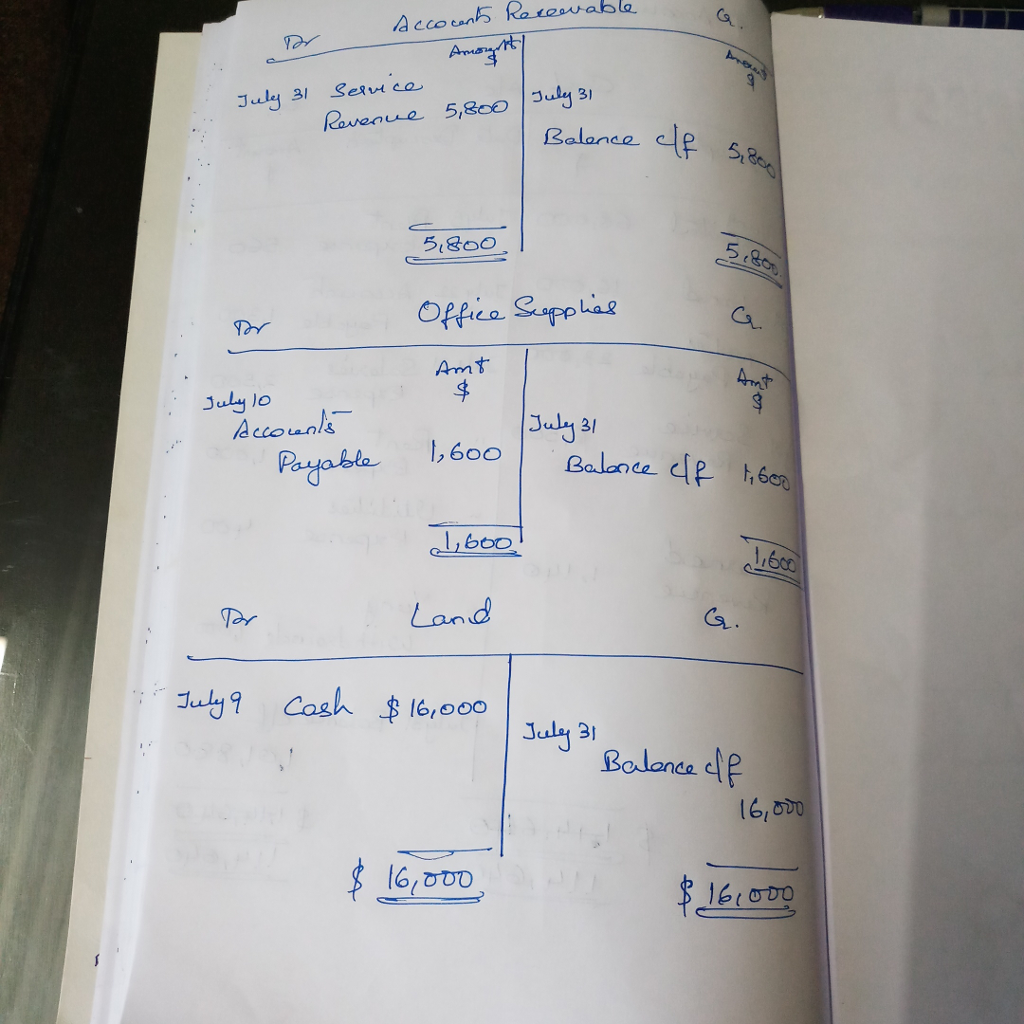 Accounts Receivable
Dr Cr.
Amount Amount
$ $
July 31 Service July 31
Revenue 5,800 Balance c/f 5,800
5,800 5,800
Office Supplies
Dr Cr.
Amt Amt
$ $
July 10 July 31
Accounts
Payable 1,600 Balance c/f 1,600
1,600 1,600
Dr Land Cr.
July 9 Cash $ 16,000 July 31
Balance c/f
16,000
$ 16,000 $ 16,000